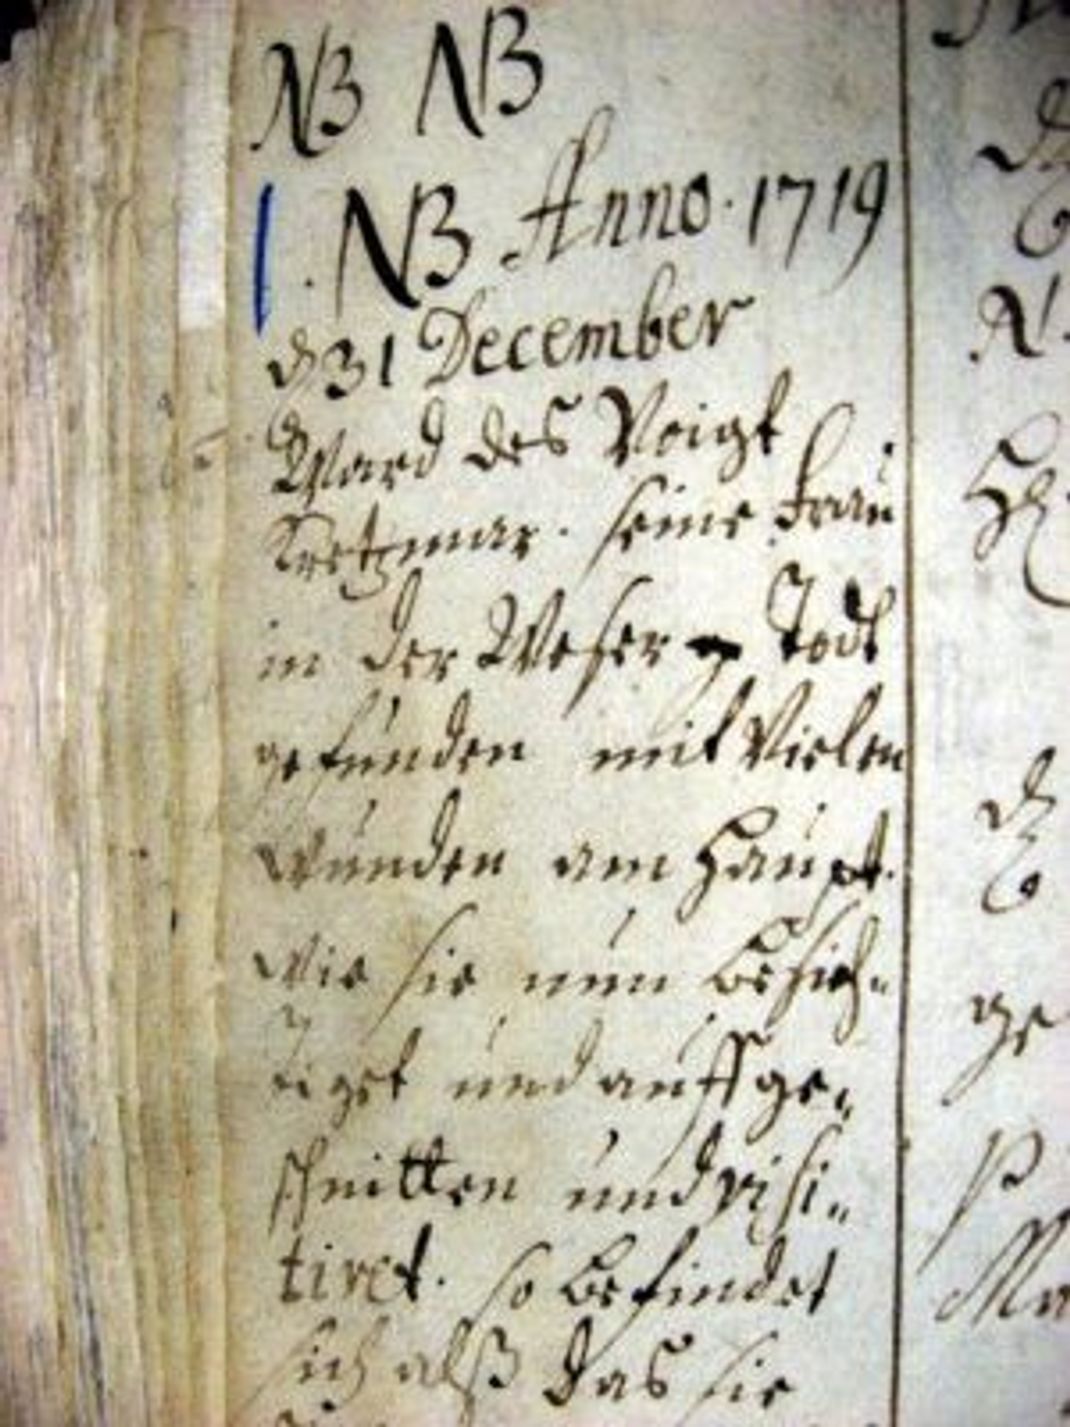 NB NB
NB Anno 1719
d 31 December
Ward des Voigt
Kretzmar. seine Frau
in der Weser Todt
gefunden mit Vielen
wunden am Haupt.
wie sie nun besich-
tiget und auffge-
schnitten und visi-
tiret. so befindet
sich alß das sie